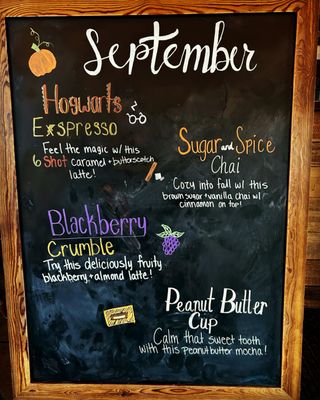 September
Hogwarts
Exspresso
Feel the magic w/ this
6 Shot caramel + butterscotch
latte!
Sugar and Spice
Chai
Cozy into fall w/ this
brown sugar + vanilla chai w/
cinnamon on top!
Blackberry
Crumble
Try this deliciously fruity
blackberry + almond latte!
Peanut Butter
Cup
Calm that sweet tooth
with this peanut butter mocha!